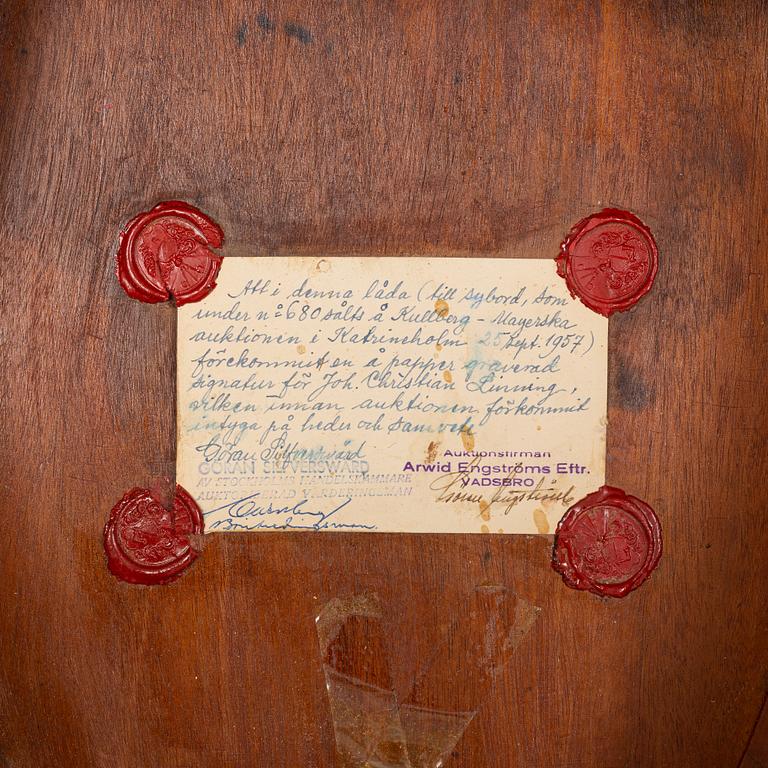 Att i denna låda (till sybord, som
under nº 680 sålts å Kullberg - Mayerska
auktionen i Katrineholm 25 Sept. 1957)
förekommit en å papper graverad
signatur för Joh. Christian Linning,
vilken innan auktionen förkommit
intyga på heder och samvete
Göran Silfversvärd
GÖRAN SILFVERSWÄRD
AV STOCKHOLMS HANDELSKAMMARE
AUKTORISERAD VÄRDERINGSMAN
Auktionsfirman
Arwid Engströms Eftr.
VADSBRO
Engström